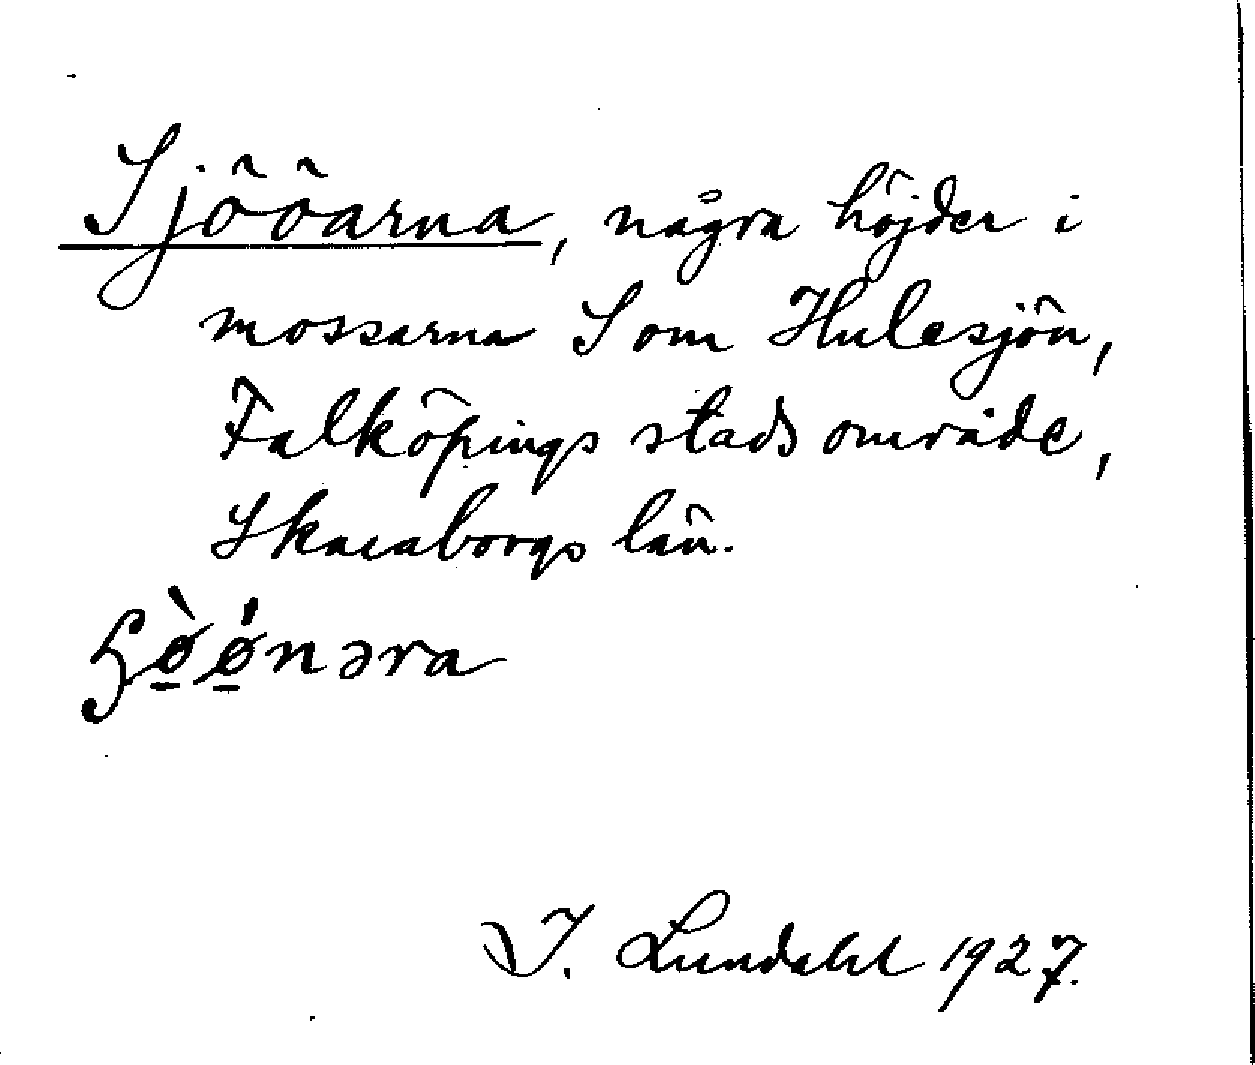 Sjööarna, några höjder i
mossarna S om Hulesjön,
Falköpings stads område,
Skaraborgs län.
ɧø̀ǿnəra
I. Lundahl 1927.